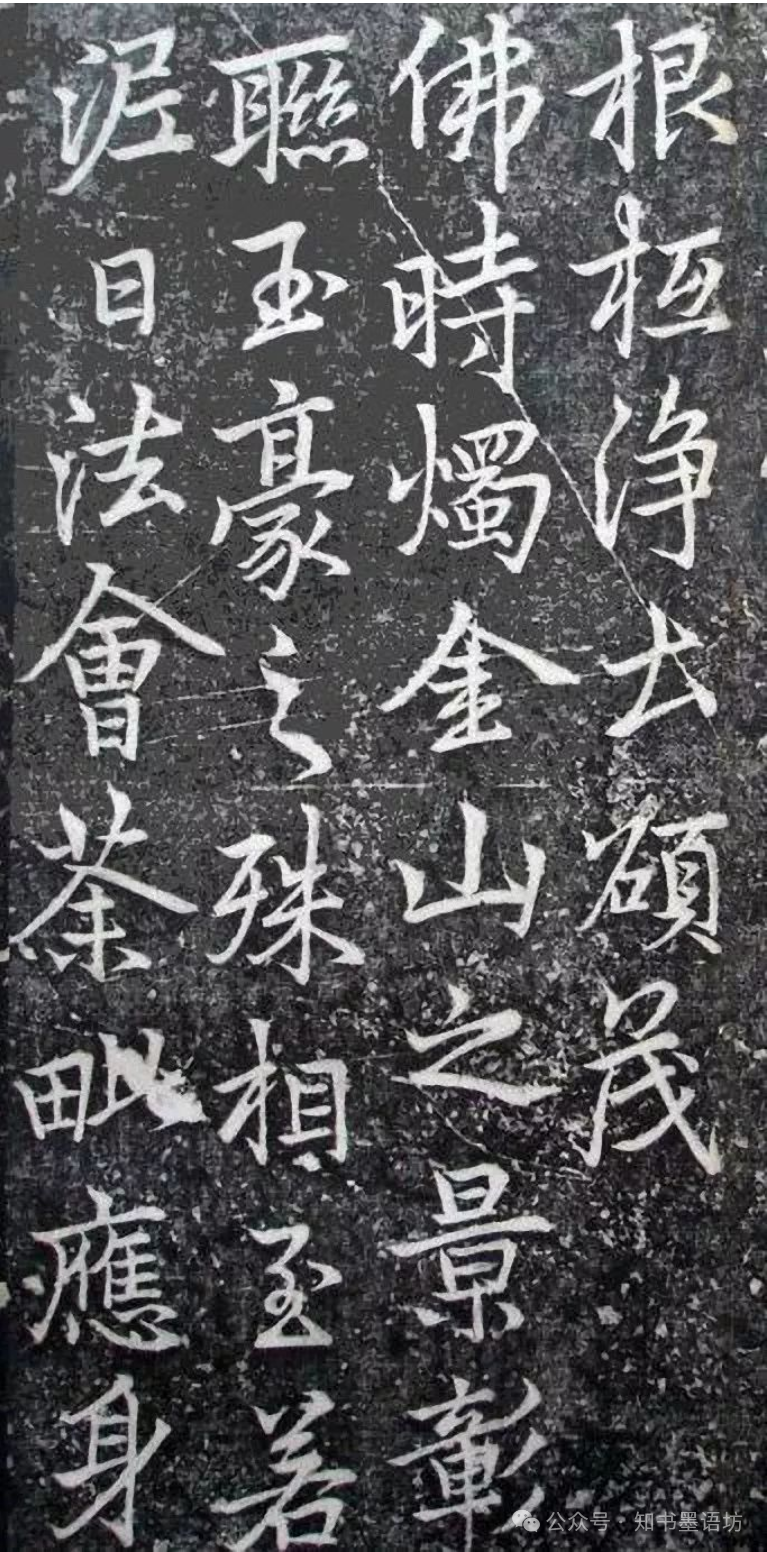 根植浄土碩茂
佛時燭金山之景彰
聯玉豪之殊相至若
泥日法會荼毗應身
公众号·知书墨语坊